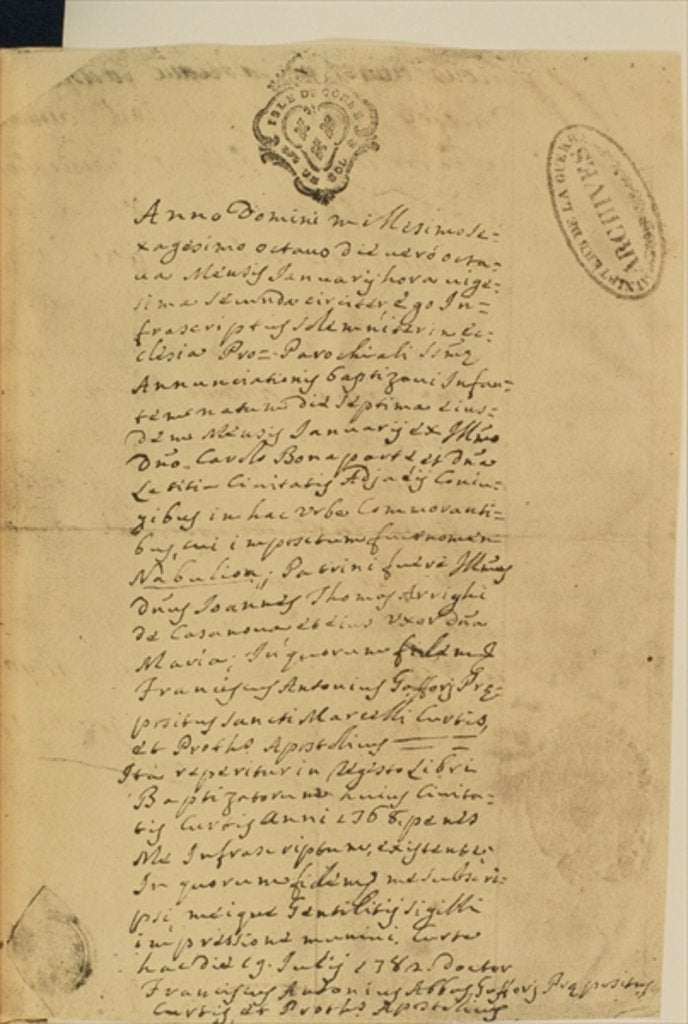 ISLE DE CORSE
UN SOL
ARCHIVES
DE LA GUERRE
Anno Domini millesimo se=
xagesimo octavo die verò octa=
va Mensis Januarij hora vige=
sima secunda circiter ego In=
frascriptus solemniter in ec=
clesia Pro= Parochiali Ssmȩ
Annunciationis baptizavi Infan=
tem natum die septima eius=
dem Mensis Januarij ex Illmo
Dño. Carolo Bonaparte et Dña
Letitia Civitatis Adjacij Coniu=
gibus in hac Urbe Commoranti=
bus, cui impositum fuit nomen
Nabulion; Patrini fuere Illmus
Dñus Joannes Thomas Arrighi
de Casanova et eius Uxor Dña
Maria; In quorum fidem
Franciscus Antonius Gafforj Prȩ=
positus Sancti Marcelli Curtis,
et Proths Apostolicus
Ita reperitur in Registo Libri
Baptizatorum huius Civita=
tis Curtis Anni 1768. penes
Me Infrascriptum, existente:
In quorum fidem me subscri=
psi, meique Gentilitij sigilli
impressione munivi, Curte
hac die 19. Julij 1782. Doctor
Franciscus Antonius Abbas Gafforj Prȩpositus
Curtis et Proths Apostolicus